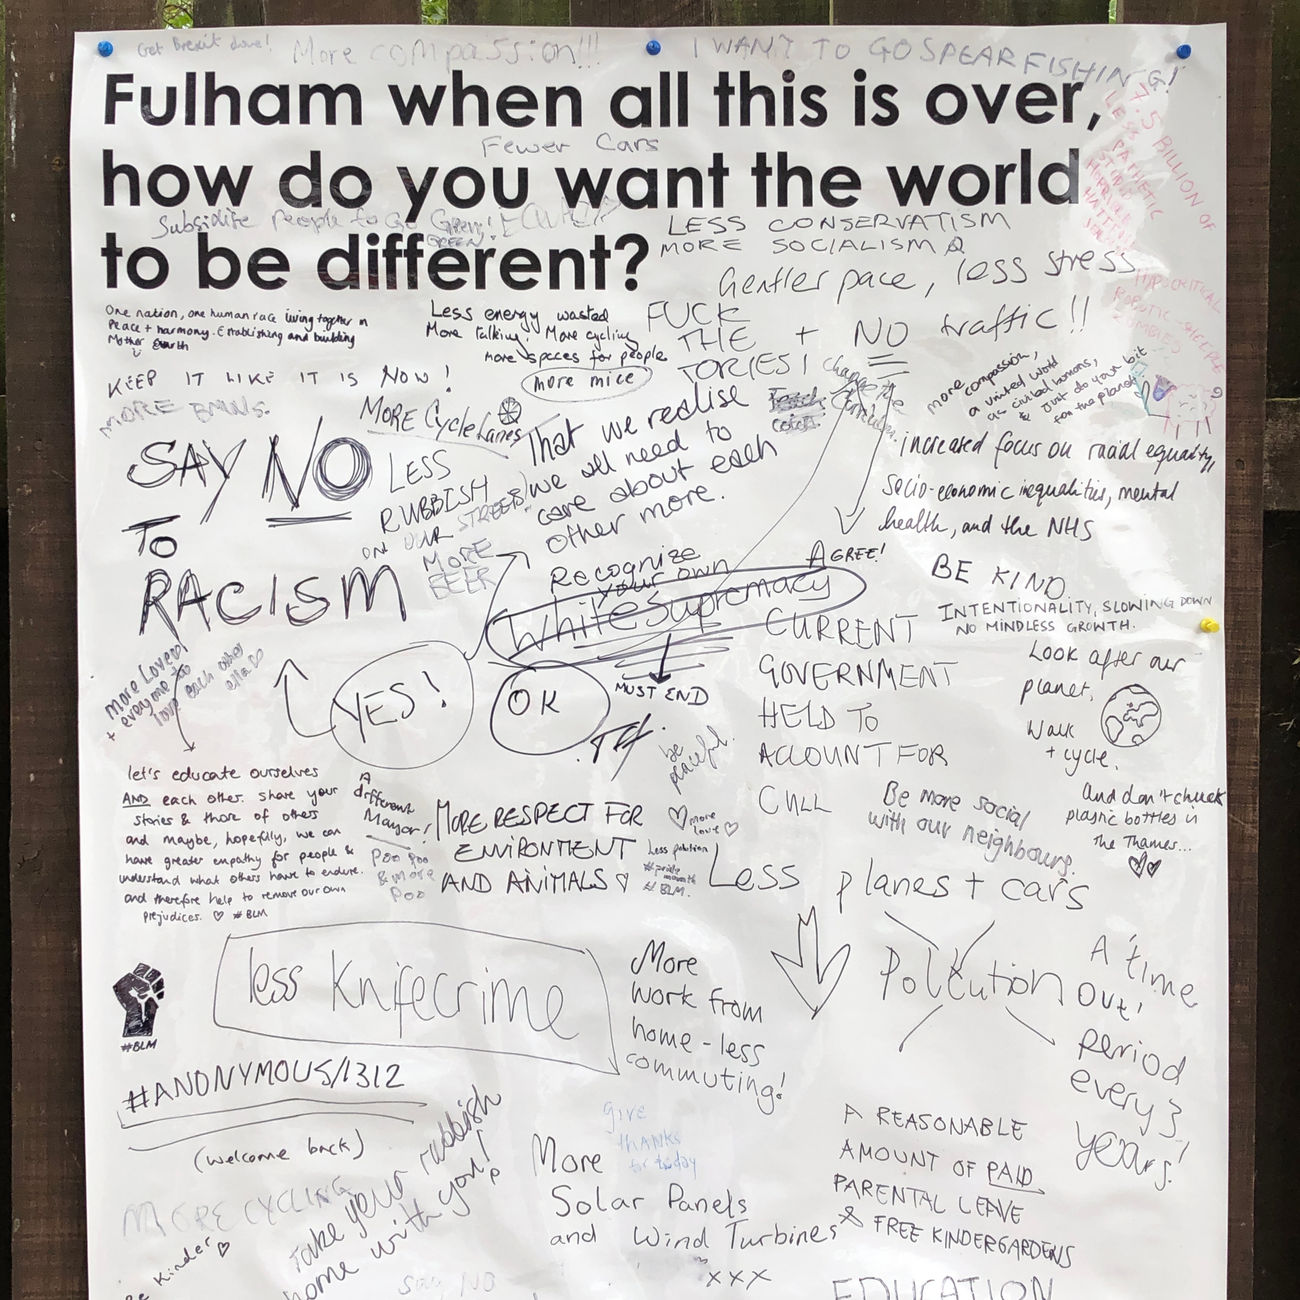 Get Brexit done!
More compassion!!!
I WANT TO GO SPEAR FISHING!
Fulham when all this is over,
Fewer Cars
how do you want the world
Subsidise People to Go Green!
GREEN!
to be different?
7.5 BILLION OF
LESS CONSERVATISM
MORE SOCIALISM
Gentler pace, less stress
+ NO traffic!!
HYPOCRITICAL
One nation, one human race living together in
Peace + harmony. Establishing and building
Mother Earth
Less energy wasted
More talking! More cycling
more spaces for people
more mice
FUCK
THE
TORIES!
KEEP IT LIKE IT IS NOW!
MORE BMWs.
MORE Cycle Lanes
more compassion,
a united world
as civilised humans,
& just do your bit
for the planet
SAY NO
TO
RACISM
LESS
RUBBISH
ON OUR STREETS!
MORE
BEER
That we realise
we all need to
care about each
other more.
increased focus on racial equality,
socio-economic inequalities, mental
health, and the NHS
AGREE!
Recognize
your own
White Supremacy
MUST END
BE KIND
INTENTIONALITY, SLOWING DOWN
NO MINDLESS GROWTH.
more Love
+ everyone to
love each other
YES!
OK
be
peaceful.
CURRENT
GOVERNMENT
HELD TO
ACCOUNT FOR
CULL
Look after our
planet,
Walk
+ cycle.
And don't chuck
plastic bottles in
the Thames...
let's educate ourselves
AND each other. share your
stories & those of others
and maybe, hopefully, we can
have greater empathy for people &
understand what others have to endure.
and therefore help to remove our own
prejudices. ♡ #BLM
A
different
Mayor!
Poo Poo
& more
Poo
MORE RESPECT FOR
ENVIRONMENT
AND ANIMALS ♡
♡ more
love ♡
Less pollution
#pride
month
#BLM.
Be more social
with our neighbours.
Less planes + cars
Pollution
less Knifecrime
#BLM
More
work from
home - less
commuting!
A time
Out!
period
every 3
years!
#ANONYMOUS/1312
(welcome back)
MORE CYCLING
Be Kinder ♡
Take your rubbish
home with you!
give
thanks
for today
More
Solar Panels
and Wind Turbines
xxx
A REASONABLE
AMOUNT OF PAID
PARENTAL LEAVE
& FREE KINDERGARDENS
Say NO
EDUCATION